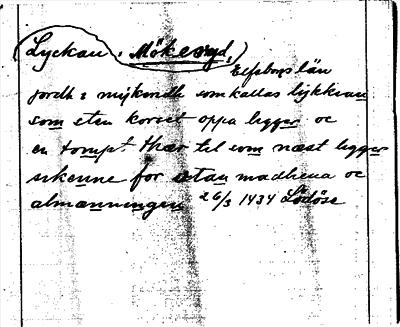 Lyckan, Mökesryd,
Elfsborgs län
jordh i mykendh som kallas lykkran
som sten korset oppa ligger oc
en tompt thær til som næst ligger
kirkenne for utan madhena oc
almænningen 26/3 1434 Lödöse